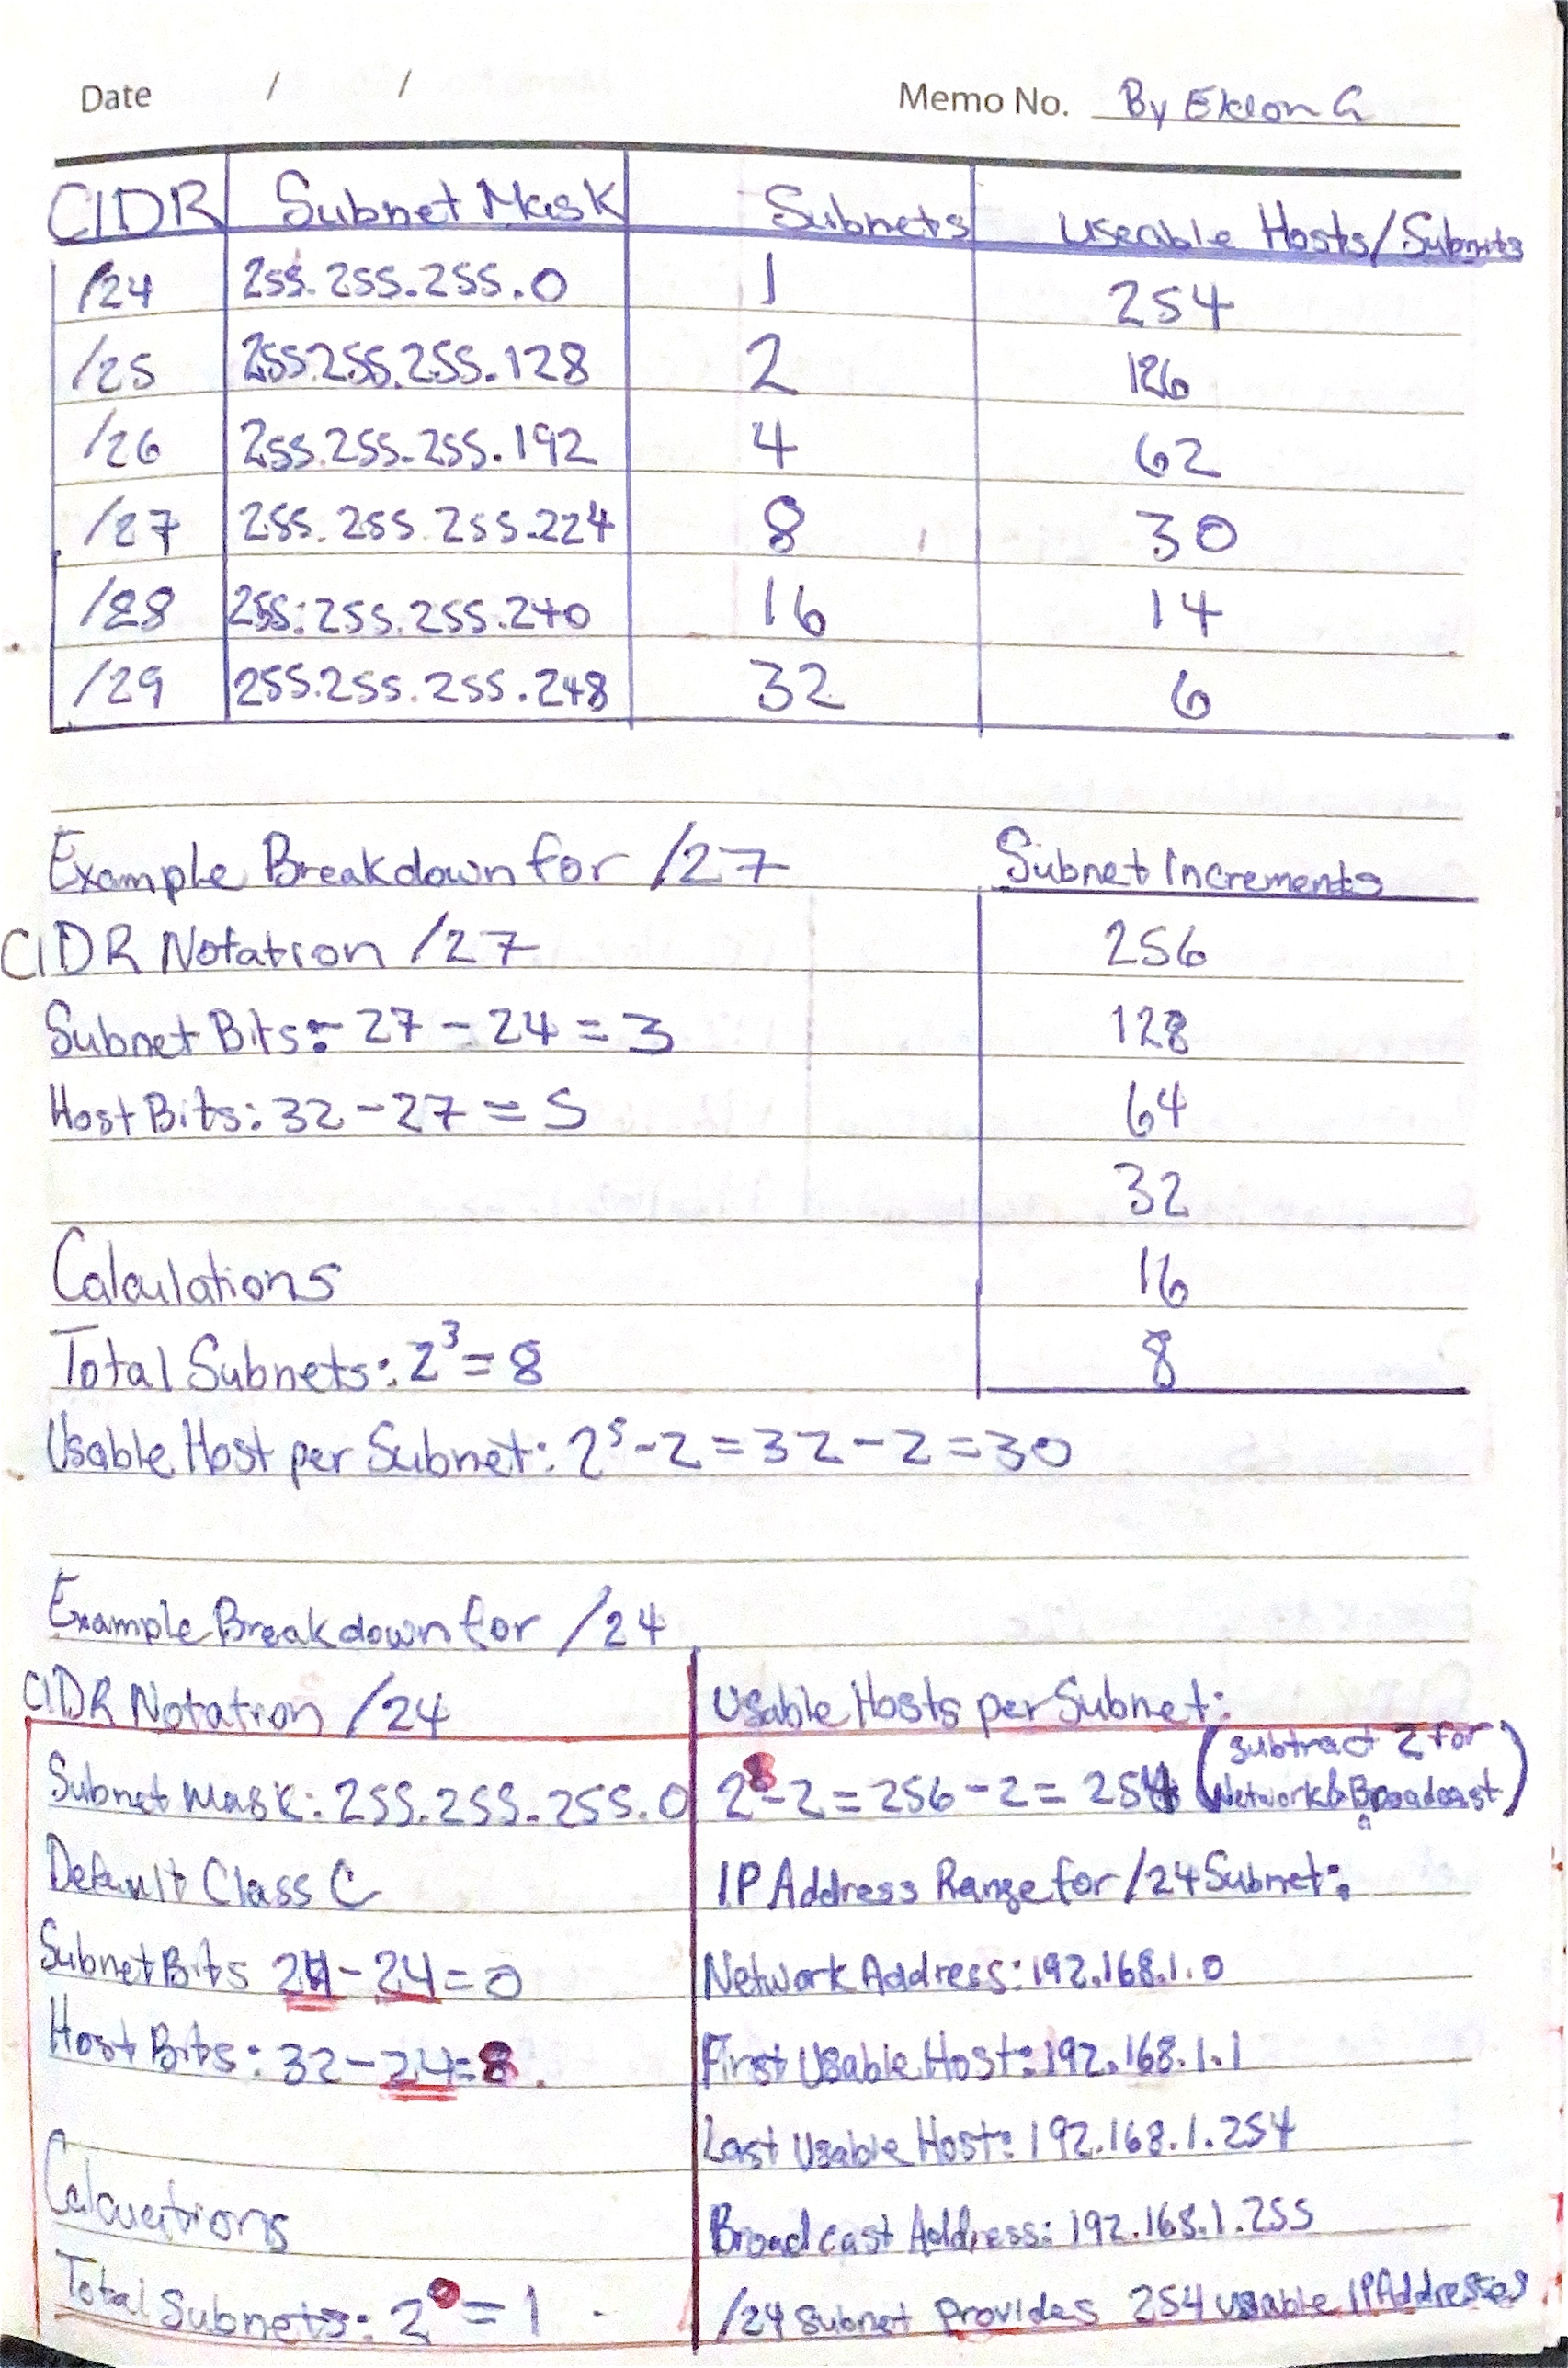 Date / / Memo No. By Eklon G
CIDR Subnet Mask Subnets Useable Hosts/Subnets
/24 255.255.255.0 1 254
/25 255.255.255.128 2 126
/26 255.255.255.192 4 62
/27 255.255.255.224 8 30
/28 255.255.255.240 16 14
/29 255.255.255.248 32 6
Example Breakdown for /27
CIDR Notation /27
Subnet Bits:- 27 - 24 = 3
Host Bits: 32 - 27 = 5
Calculations
Total Subnets: 2³ = 8
Usable Host per Subnet: 2⁵ - 2 = 32 - 2 = 30
Subnet Increments
256
128
64
32
16
8
Example Breakdown for /24
CIDR Notation /24
Subnet Mask: 255.255.255.0
Default Class C
Subnet Bits 24 - 24 = 0
Host Bits: 32 - 24 = 8.
Calcuations
Total Subnets: 2⁰ = 1
Usable Hosts per Subnet:
2⁸ - 2 = 256 - 2 = 254 (subtract 2 for
Network & Broadcast)
IP Address Range for /24 Subnet:
Network Address: 192.168.1.0
First Usable Host: 192.168.1.1
Last Usable Host: 192.168.1.254
Broadcast Address: 192.168.1.255
/24 Subnet Provides 254 usable IP Addresses